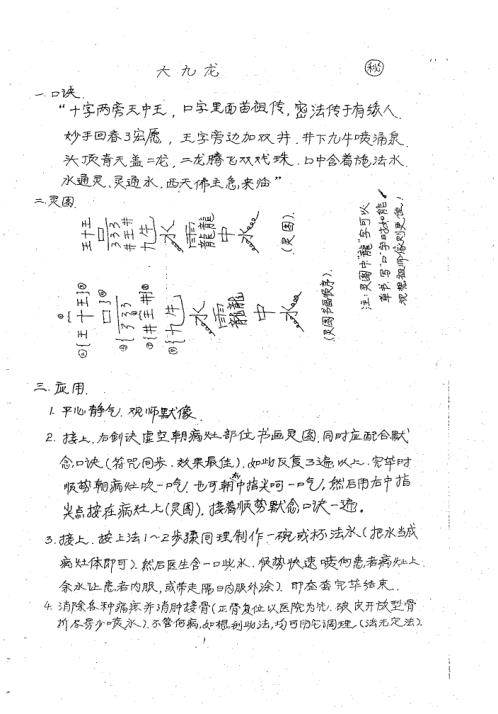 大九龙
秘
一.口诀.
“十字两旁天中王，口字里面苗祖传，密法传于有缘人.
妙手回春了宏愿，王字旁边加双井.井下九牛喷涌泉.
头顶青天盖二龙，二龙腾飞双戏珠.口中含着施法水.
水通灵.灵通水.西天佛主急来临”
二.灵图.
王十王
口
井王井
九牛
水
雨
龍龍
中
水
(灵图).
注:灵图中“龍”字可以
草书.写“口”字时如能
观想祖师像则更佳!
王十王
口
井王井
九牛
水
雨
龍龍
中
水
(灵图书画顺序).
三.应用.
1.平心静气.观师默像.
2.接上.右剑诀虚空朝病灶部位书画灵图.同时应配合默
念口诀(符咒同步.效果最佳).如此反复3遍以上.完毕时
顺势朝病灶吹一口气.也可朝中指尖呵一口气.然后用右中指
尖点按在病灶上(灵图).接着顺势默念口诀一遍.
3.接上.按上法1～2步骤同理制作一碗或杯法水(把水当成
病灶体即可).然后医生含一口此水.顺势快速喷向患者病灶上.
余水让患者内服.或带走隔日内服外涂).即查查完毕结束.
4.消除各种痛症并消肿接骨(正骨复位以医院为先.破皮开放型骨
折尽量少喷水).不管何病,如根利此法,均可用它调理.(法无定法).